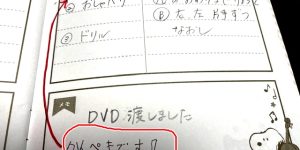 ② おしゃべり
③ ドリル
B 右、左 片手ずつ
なおし
メモ
DVD 渡しました
かんぺきです!!